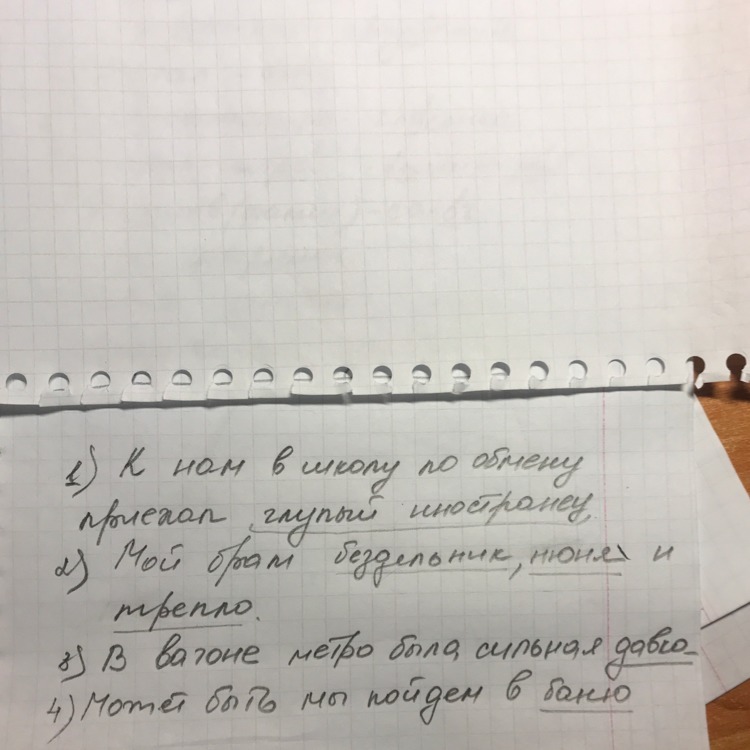 1) К нам в школу по обмену
приехал глупый иностранец
2) Мой брат бездельник, нюня и
трепло.
3) В вагоне метро была сильная давка
4) Может быть мы пойдем в баню